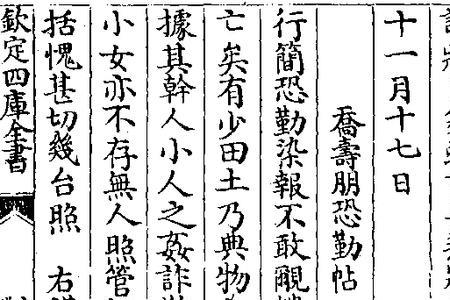 十一月十七日
喬壽朋恐勤帖
行簡恐勤染報不敢覼
亡矣有少田土乃典物
據其幹人小人之姦詐
小女亦不存無人照管
括愧甚切幾台照 右
欽定四庫全書